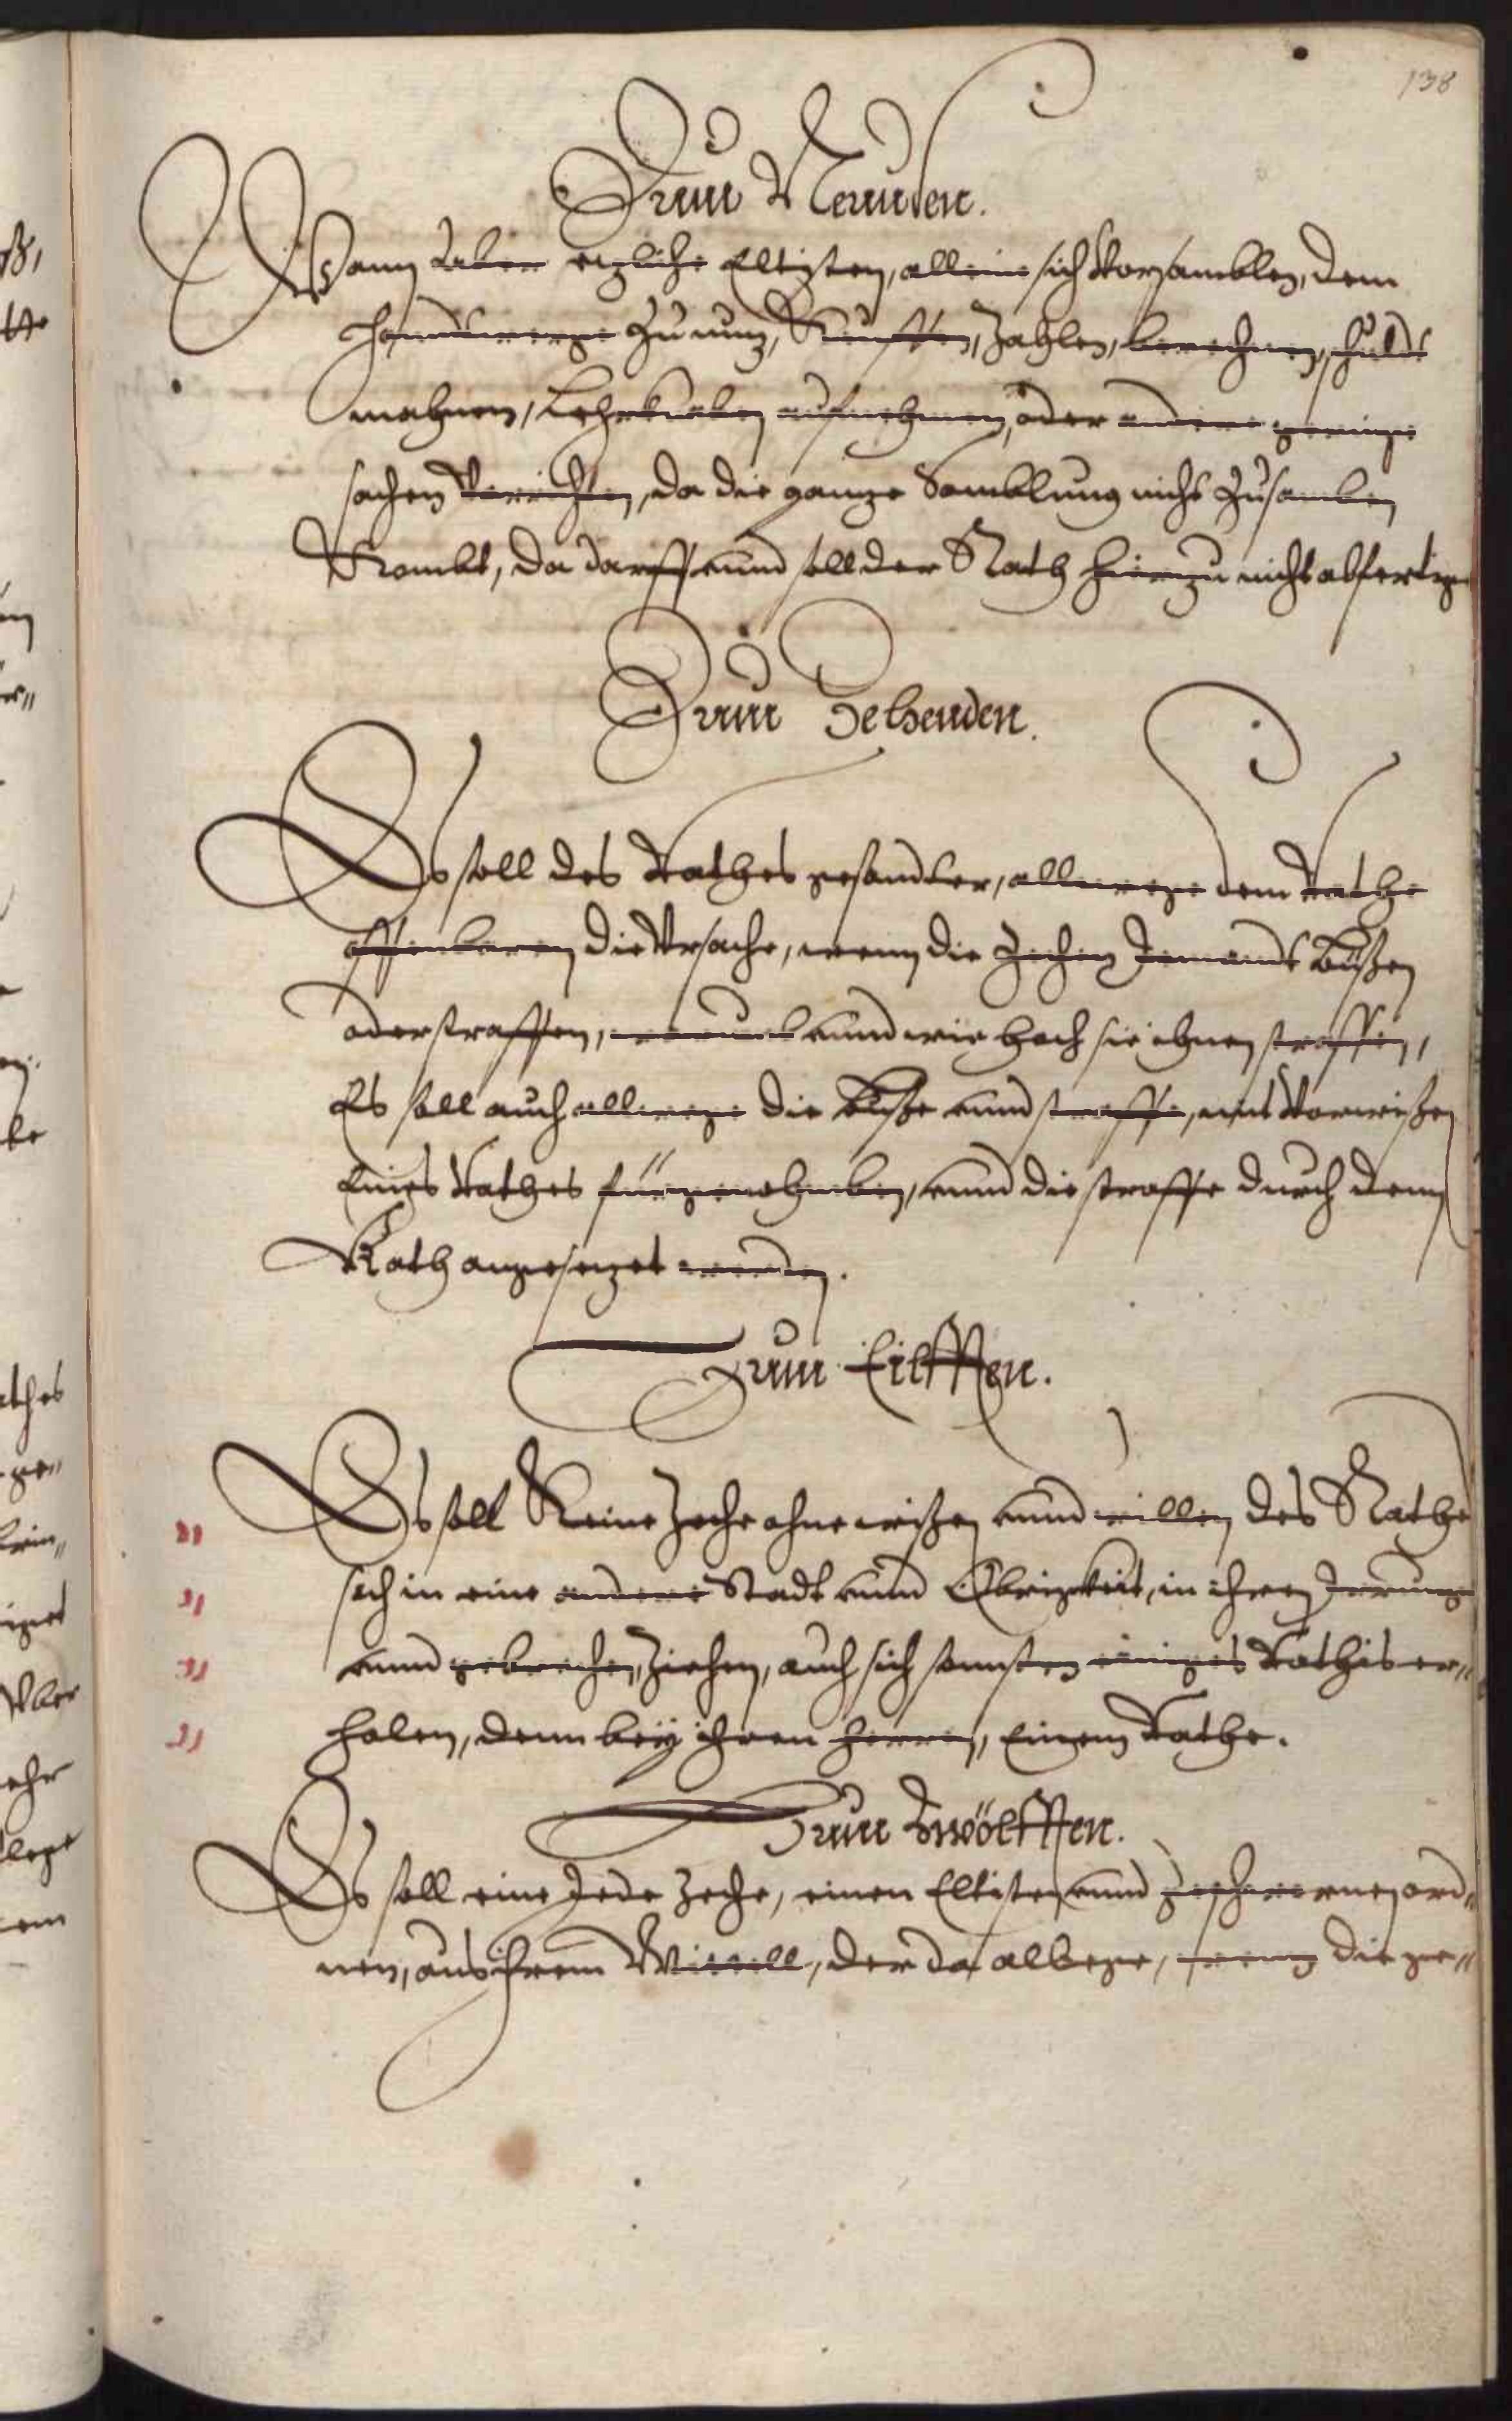 138
Zum Neunden.
Wann aber ezliche Eltisten, alleine sich Vorsamblen, dem
Handwerge Zu nuz, Keuffen, Zahlen, berechnen, schulde
mahnen, Lehrknaben aufnehmen, oder andere geringe
sachen Vorrichten, da die ganze Samblung nicht Zusamben
Kombt, da darff vnnd soll der Rath hierzu nicht abfertigen
Zum Zehenden.
Es soll des Rathes gesandter, allewege dem Rathe
offenbaren die Vrsache, wenn die Zechen Jemandt büßen
oder straffen, warumb vnnd wie hoch sie ihnen straffen,
Es soll auch allewege die buße vnnd straffe, mit Vorwißen
Eines Rathes fürgenohmben, vnnd die straffe durch denn
Rath angesezet werden.
Zum Eilfften.
Es soll Keine Zeche ohne wißen vnnd willen des Raths
sich in eine andere Stadt vnnd Obrigkeit, in ihren Jrrungen
vnnd gebrechen, Ziehen, auch sich sonsten einiges Rathis er„
holen, denn beÿ ihren Herren, Einem Rathe.
Zum Zwölfften.
Es soll eine Jede Zeche, einen Eltisten vnnd geschwornen ord„
nen, aus ihrem Mittell, der da albege, wenn die ge„